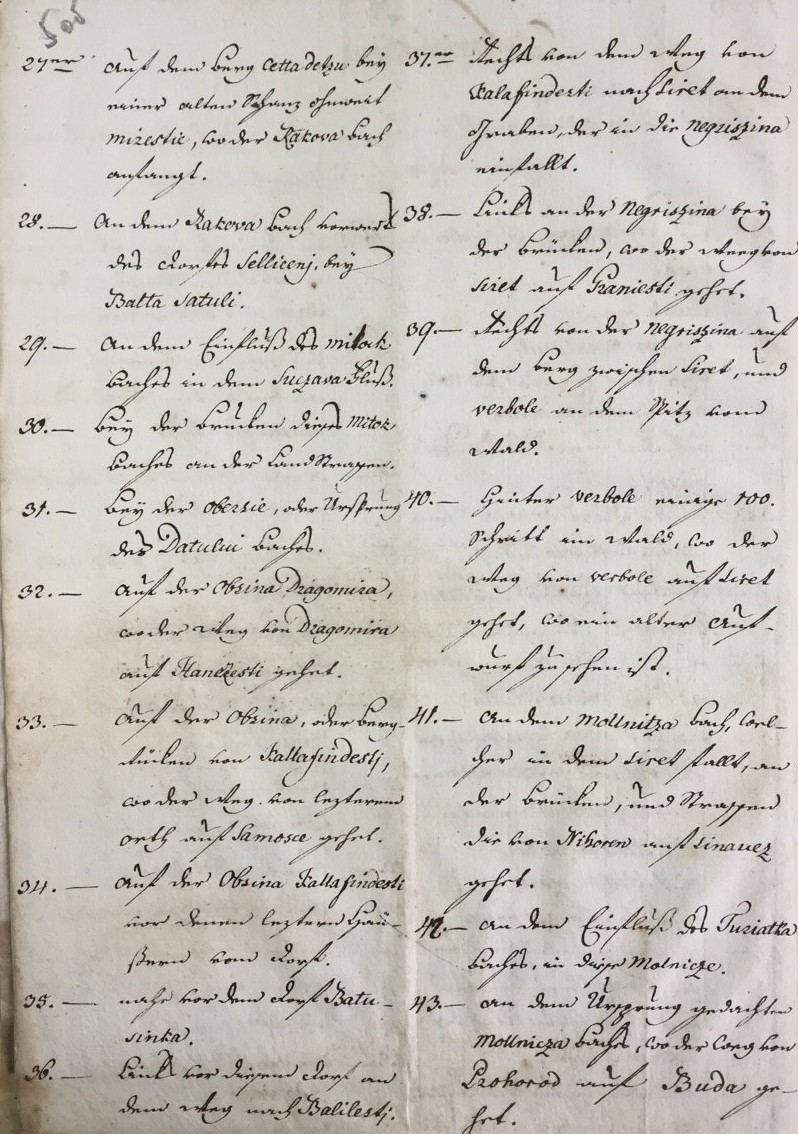 505
27er Auf dem Berg Cettadetzu bey
einer alten Schanz ohnweit
Mirestie, wo der Rakova Bach
anfangt.
28. — An dem Rakova Bach vorwerts
des Dorfes Sellicenj, bey
Balta Satuli.
29. — An dem Einfluß des Mitock
Baches in dem Suczava Fluß.
30. — Bey der Brucken dieses Mitok
Baches an der Land Strassen.
31. — Bey der Obersie, oder Ursprung
des Datului Baches.
32. — Auf der Obsina Dragomira,
wo der Weg von Dragomira
auf Hanczesti gehet.
33. — Auf der Obsina, oder Berg-
Rücken von Kallafindestj,
wo der Weg von lezterem
orth auf Samosce gehet.
34. — Auf der Obsina Kallafindesti
vor denen leztern Häu-
ßern vom Dorf.
35. — nahe vor dem Dorf Batu-
sinka.
36. — Links vor diesem Dorf an
dem Weg nach Balilestj.
37.er Rechts von dem Weg von
Kalafindesti nach Siret an dem
Graben, der in die Negriszina
einfallt.
38. — Links an der Negriszina bey
der Brücken, wo der Weeg von
Siret auf Graniesti gehet.
39. — Rechts von der Negriszina auf
dem Berg zwischen Siret, und
Verbole an dem Spitz vom
Wald.
40. — Hinter Verbole einige 100.
Schritt im Wald, wo der
Weg von Verbole auf Siret
gehet, wo ein alter Auf-
wurf zu sehen ist.
41. — An dem Mollnitza Bach, wel-
cher in dem Siret fallt, an
der Brücken, und Strassen
die von Nihoren auf Sinauez
gehet.
42. — An dem Einfluß des Turiatka
Baches, in diese Molnicze.
43. — An dem Ursprung gedachten
Mollnicza Baches, wo der Weeg von
Prohorod auf Buda ge-
het.